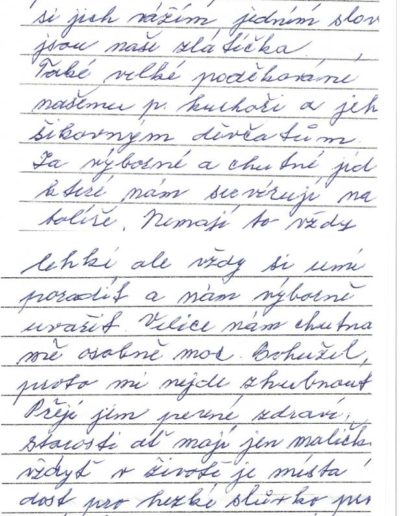 si jich vážím jedním slov
jsou naše zlatíčka.
Také velké poděkování
našemu p. kuchaři a jeh
šikovným děvčatům.
Za výborné a chutné jíd
které nám servírují na
talíře. Nemají to vždy
lehké ale vždy si umí
poradit a nám výborně
uvařit. Velice nám chutna
mě osobně moc. Bohužel,
proto mi nejde zhubnout
Přeji jim pevné zdraví,
starosti ať mají jen maličk
vždyť v životě je místa
dost pro hezké slůvko pro